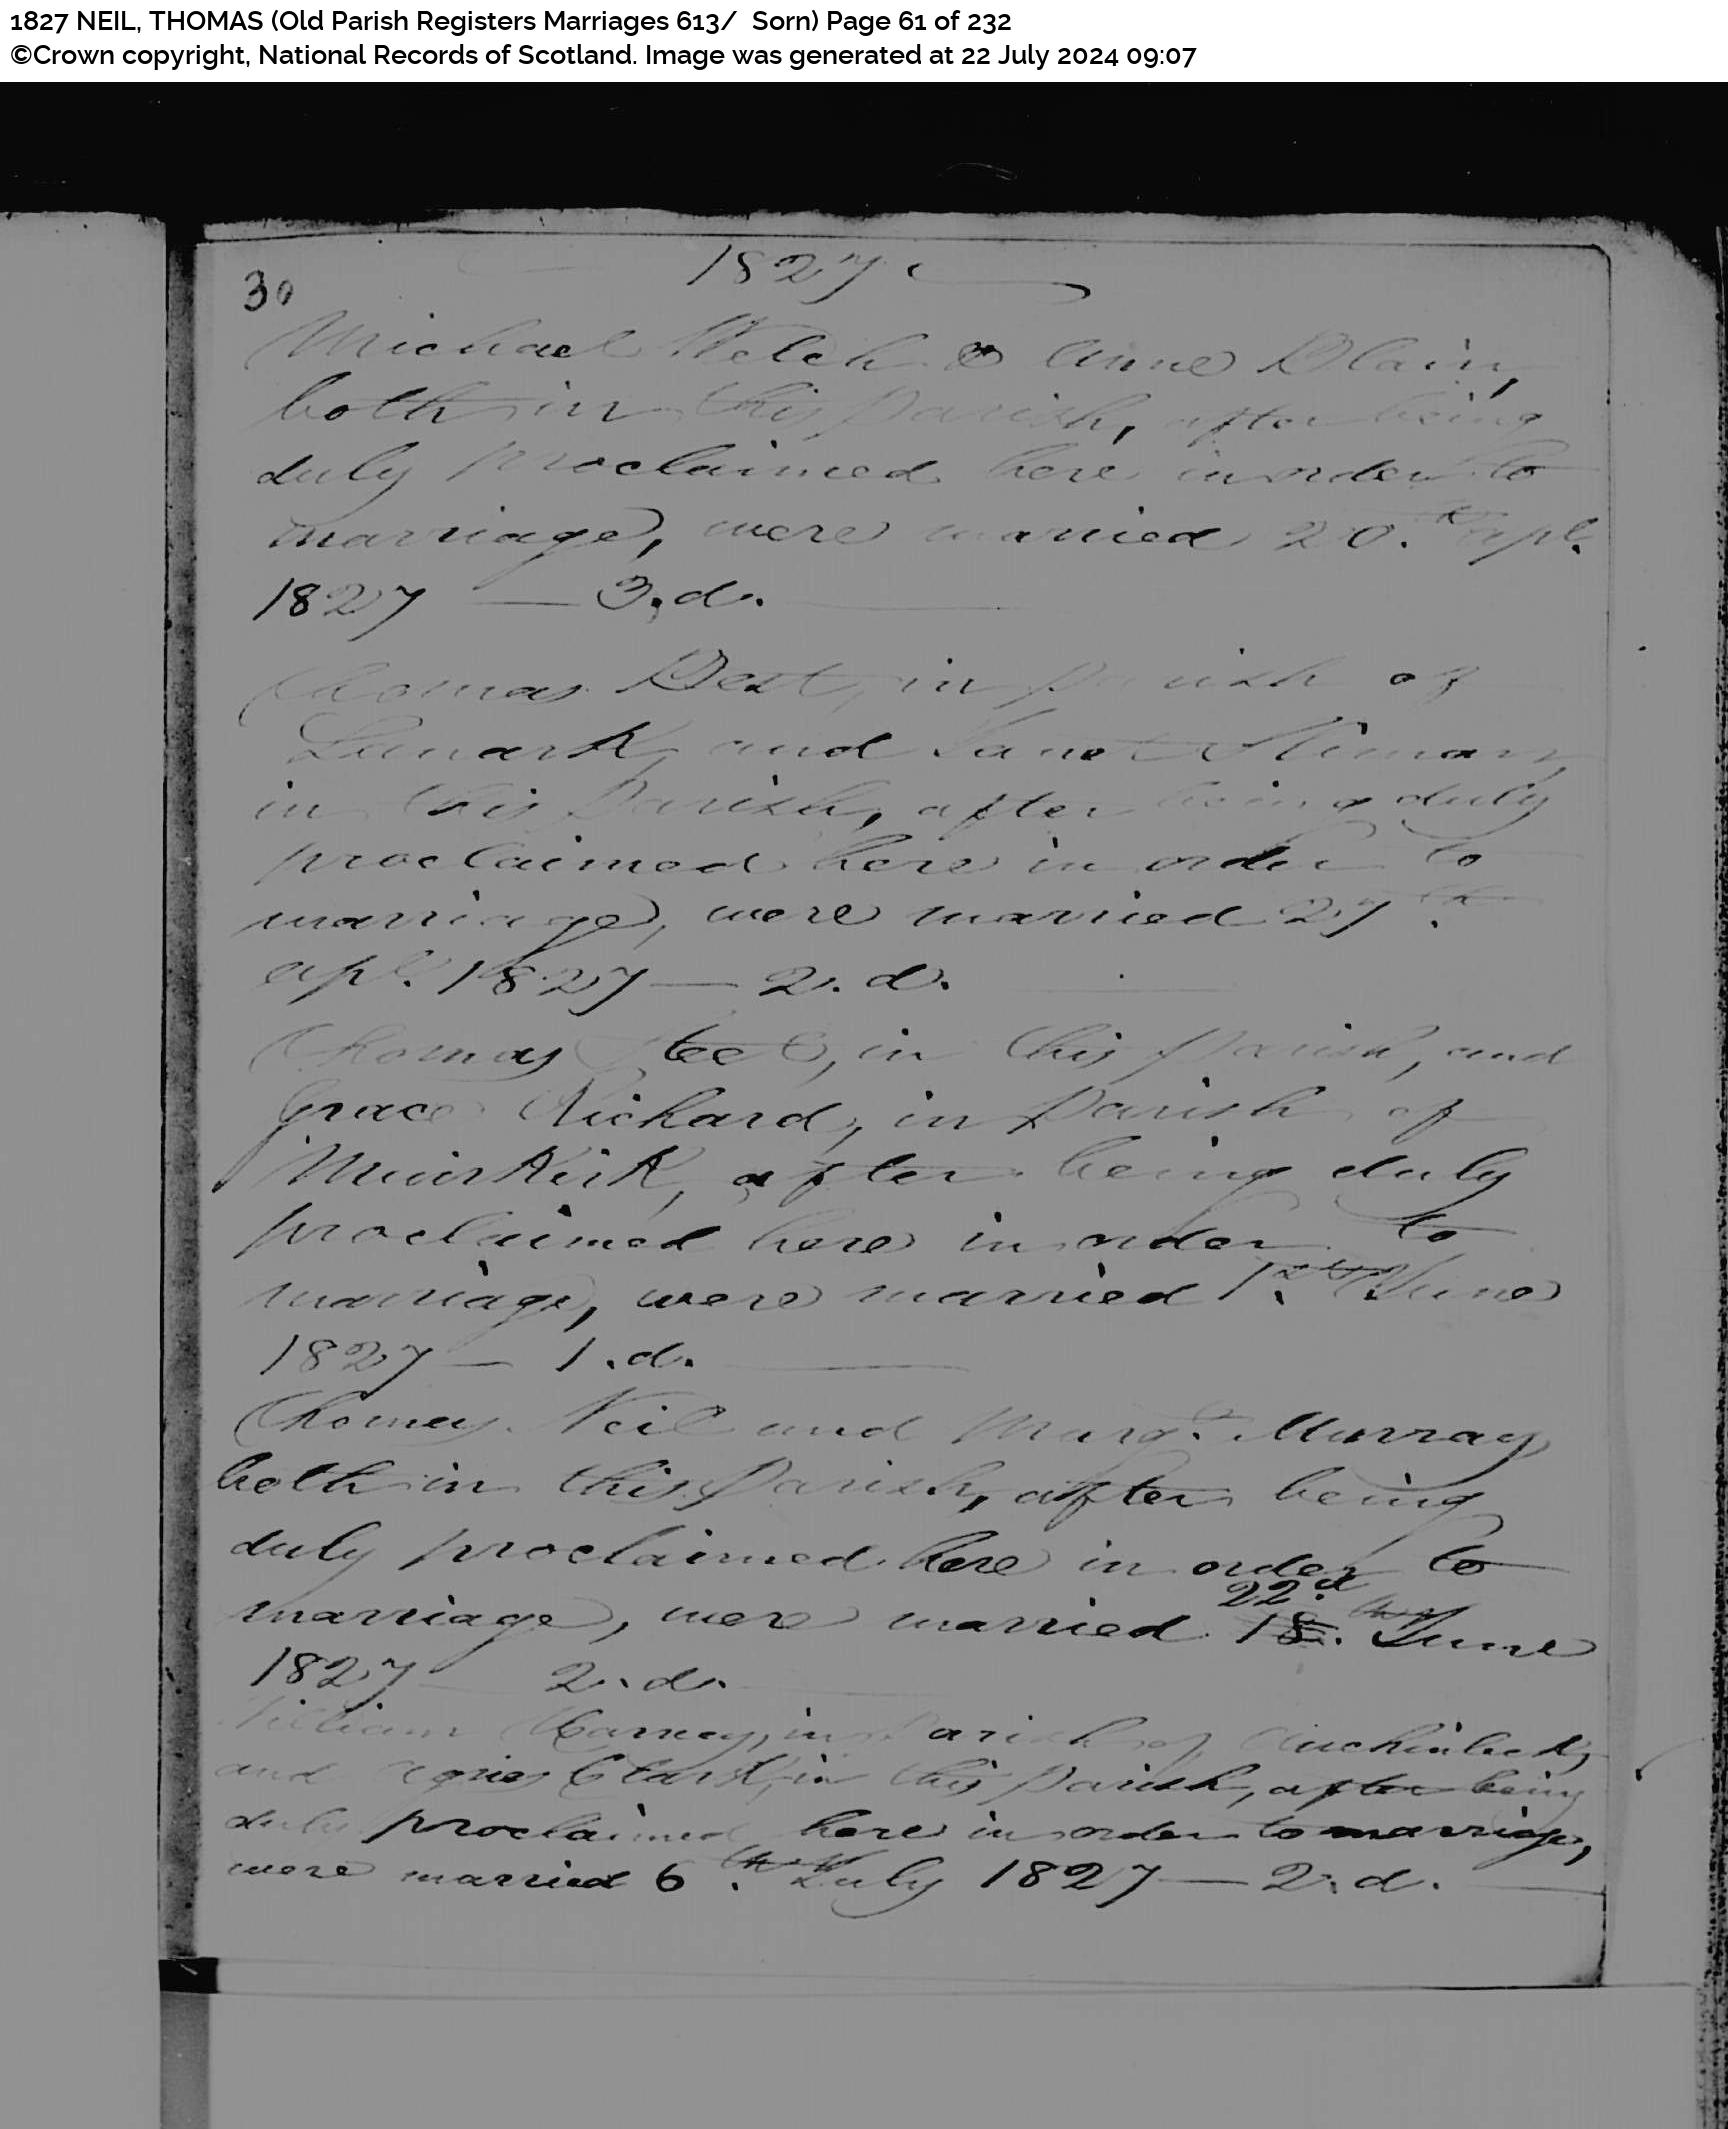 1827 NEIL, THOMAS (Old Parish Registers Marriages 613/ Sorn) Page 61 of 232
©Crown copyright, National Records of Scotland. Image was generated at 22 July 2024 09:07
1827
30
Michael Welch & Anne Blain,
both in this Parish, after being
duly proclaimed here in order to
marriage, were married 20.th apl.
1827 — 3.d.
Thomas Best, in Parish of
Lanark, and Janet
in this Parish, after being duly
proclaimed here in order to
marriage, were married 27.th
apl. 1827 — 2.d.
Thomas in this Parish, and
Grace Richard, in Parish of
Muirkirk, after being duly
proclaimed here in order to
marriage, were married 1.st June
1827 — 1.d.
Thomas Neil and Margt. Murray
both in this Parish, after being
duly proclaimed here in order to
22.d
marriage, were married 18.th June
1827 — 2.d.
William in Parish of Auchinleck,
and Agnes Clark, in this Parish, after being
duly proclaimed here in order to marriage,
were married 6.th July 1827 — 2.d.